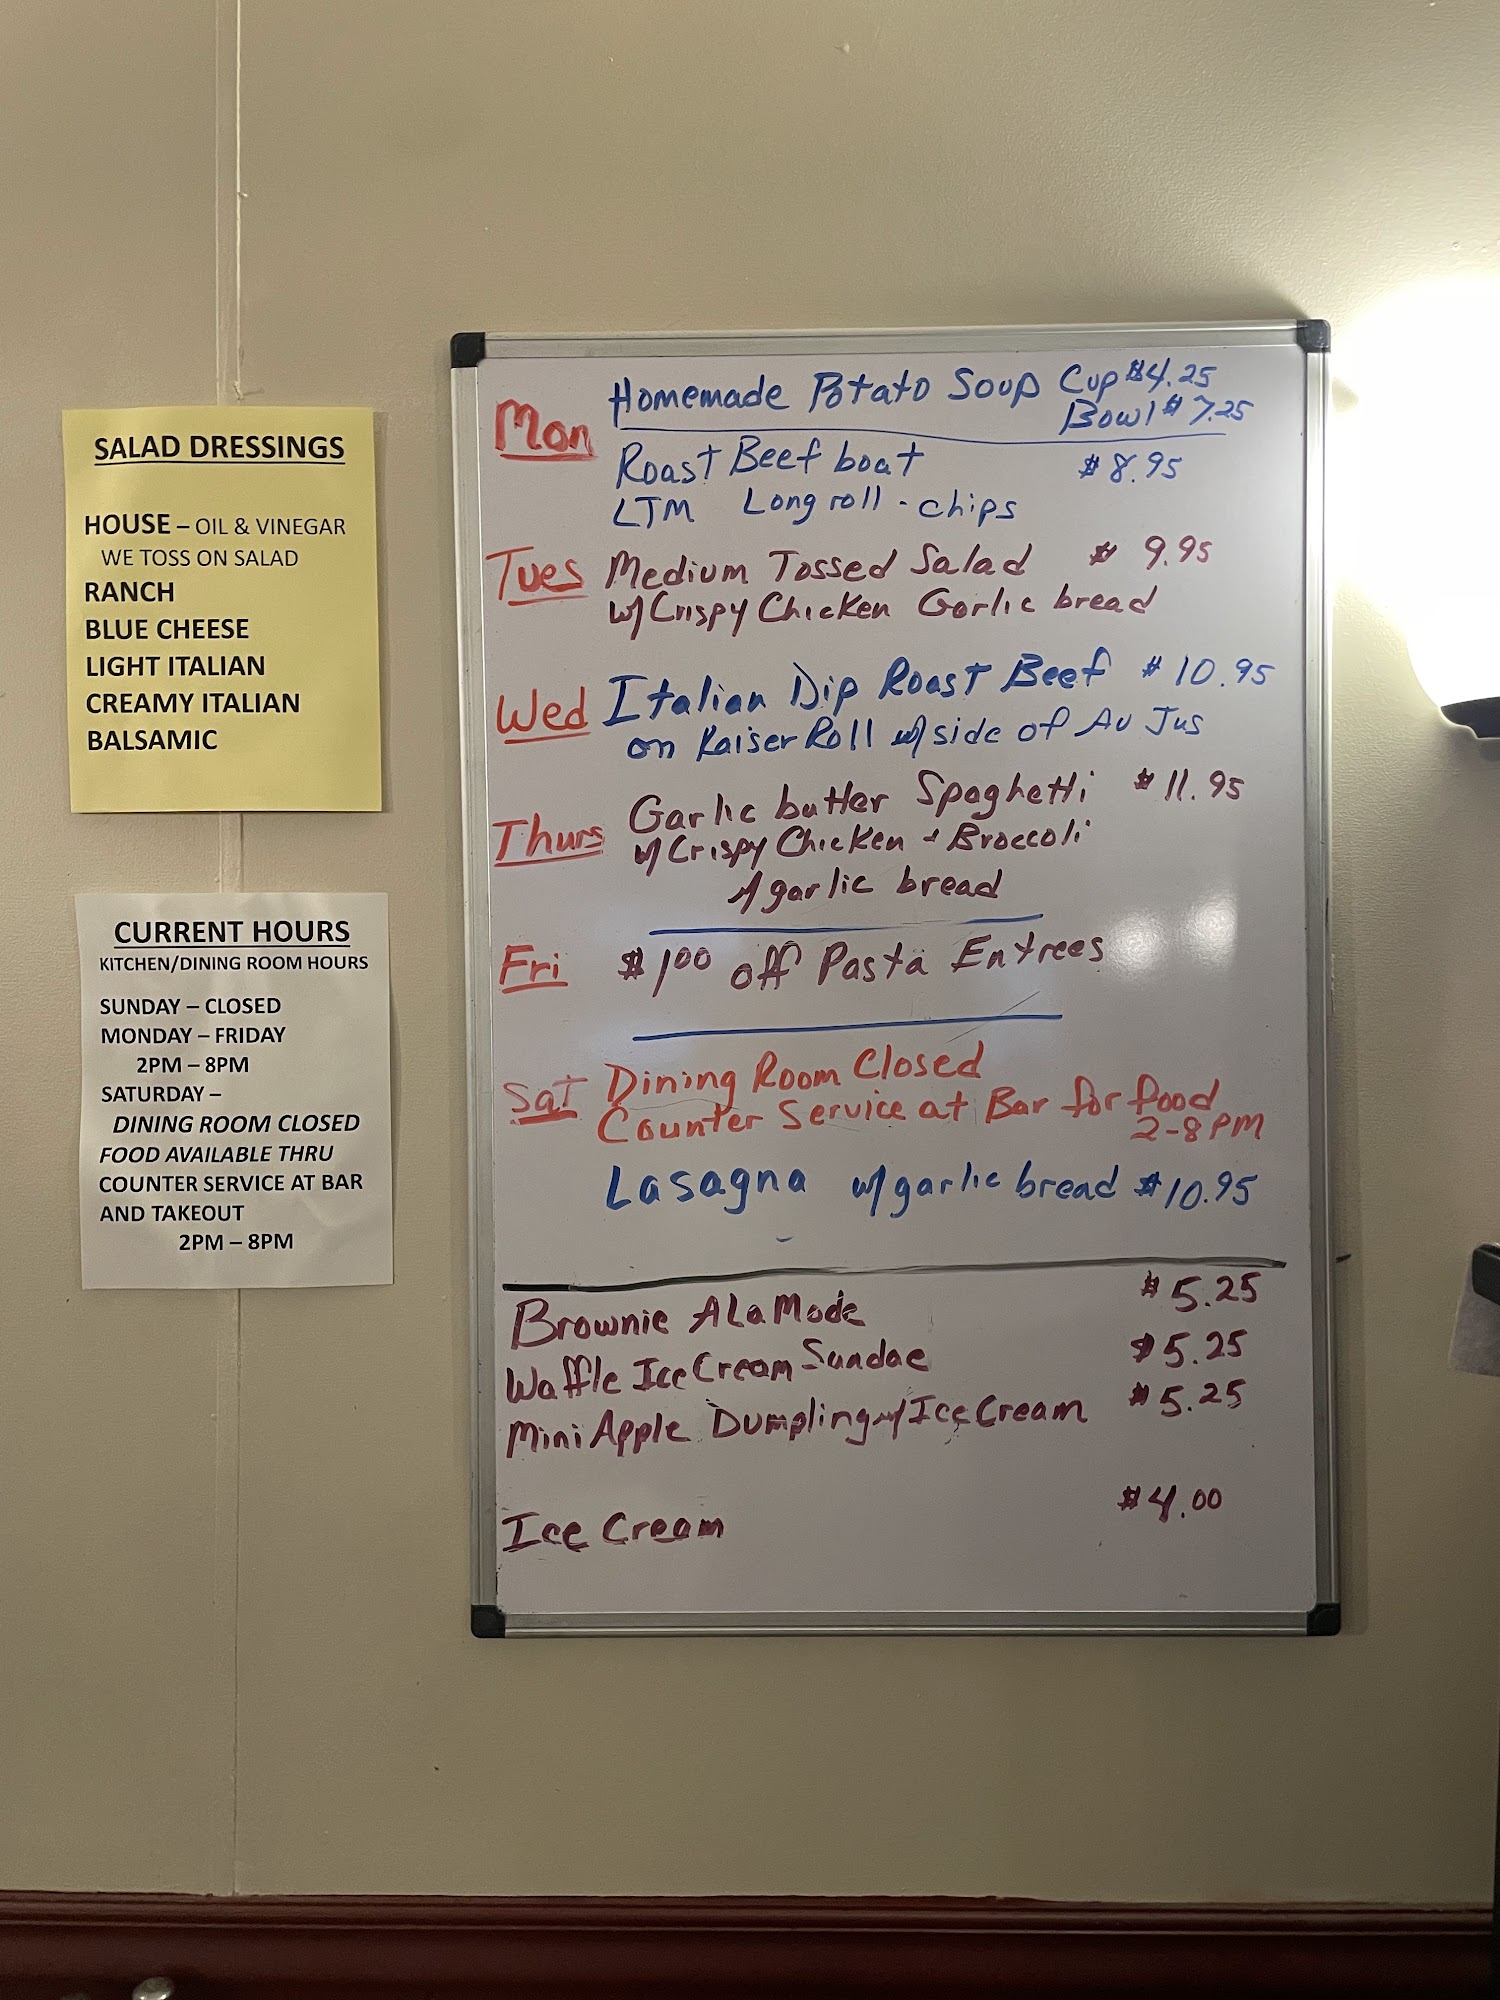 SALAD DRESSINGS
HOUSE – OIL & VINEGAR
WE TOSS ON SALAD
RANCH
BLUE CHEESE
LIGHT ITALIAN
CREAMY ITALIAN
BALSAMIC
CURRENT HOURS
KITCHEN/DINING ROOM HOURS
SUNDAY – CLOSED
MONDAY – FRIDAY
2PM – 8PM
SATURDAY –
DINING ROOM CLOSED
FOOD AVAILABLE THRU
COUNTER SERVICE AT BAR
AND TAKEOUT
2PM – 8PM
Homemade Potato Soup Cup $4.25
Bowl $7.25
Mon
Roast Beef boat $8.95
LTM Long roll - chips
Tues Medium Tossed Salad $9.95
w/ Crispy Chicken Garlic bread
Wed Italian Dip Roast Beef $10.95
on Kaiser Roll w/ side of Au Jus
Garlic butter Spaghetti $11.95
Thurs w/ Crispy Chicken + Broccoli
w/ garlic bread
Fri $1.00 off Pasta Entrees
Sat Dining Room Closed
Counter Service at Bar for food
2-8PM
Lasagna w/ garlic bread $10.95
Brownie ALaMode $5.25
Waffle Ice Cream Sundae $5.25
Mini Apple Dumpling w/ Ice Cream $5.25
Ice Cream $4.00